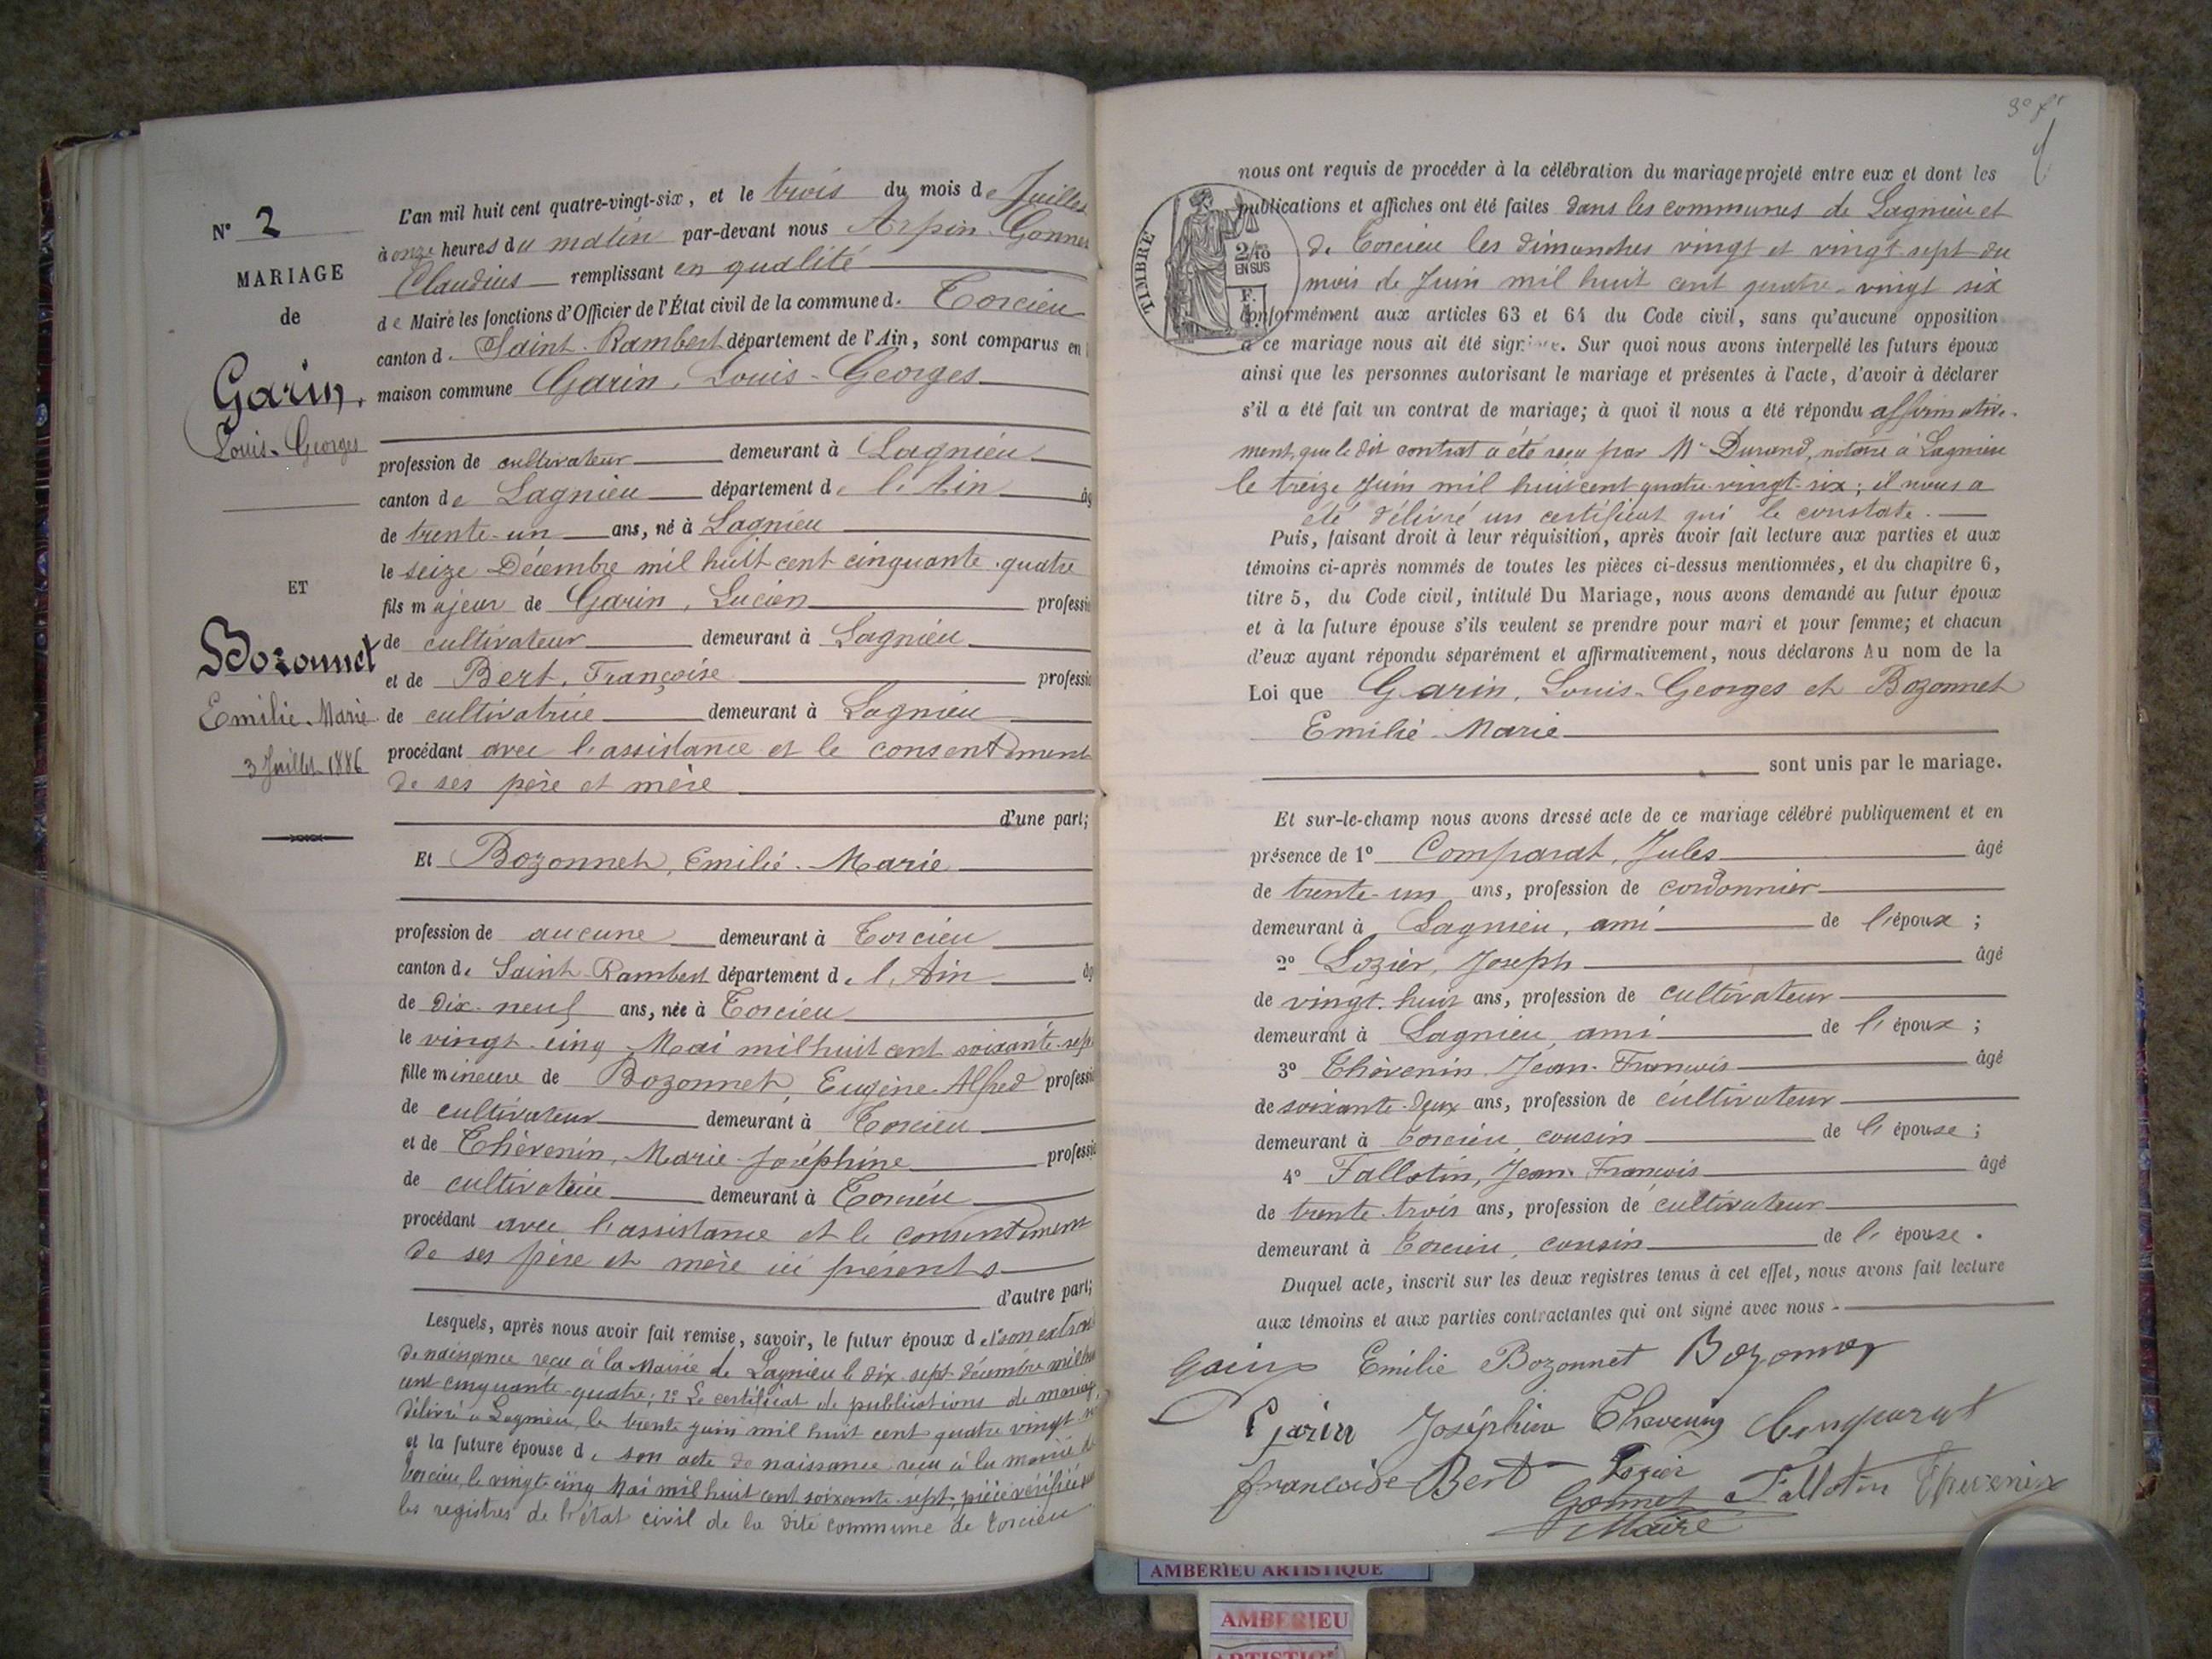 N° 2
MARIAGE
de
Garin,
Louis-Georges
ET
Bozonnet
Emilie-Marie
3 Juillet 1886
L'an mil huit cent quatre-vingt-six, et le trois du mois de Juillet
à onze heures du matin par-devant nous Arpin-Gonnet
Claudius remplissant en qualité
de Maire les fonctions d'Officier de l'État civil de la commune de Torcieu
canton d. Saint-Rambert département de l'Ain, sont comparus en
maison commune Garin, Louis-Georges
profession de cultivateur demeurant à Lagnieu
canton de Lagnieu département de l'Ain âg
de trente-un ans, né à Lagnieu
le seize Décembre mil huit cent cinquante-quatre
fils majeur de Garin, Lucien professi
de cultivateur demeurant à Lagnieu
et de Bert, Françoise professi
de cultivatrice demeurant à Lagnieu
procédant avec l'assistance et le consentement
de ses père et mère
d'une part;
Et Bozonnet, Emilie-Marie
profession de aucune demeurant à Torcieu
canton de Saint-Rambert département de l'Ain âg
de dix-neuf ans, née à Torcieu
le vingt-cinq Mai mil huit cent soixante-sept
fille mineure de Bozonnet, Eugène-Alfred professi
de cultivateur demeurant à Torcieu
et de Thévenin, Marie-Joséphine professi
de cultivatrice demeurant à Torcieu
procédant avec l'assistance et le consentement
de ses père et mère ici présents
d'autre part;
Lesquels, après nous avoir fait remise, savoir, le futur époux de 1° son extrait
de naissance reçu à la Mairie de Lagnieu le dix-sept décembre mil huit
cent cinquante-quatre; 2° Le certificat de publications de mariage
délivré à Lagnieu, le trente juin mil huit cent quatre vingt-six
et la future épouse de son acte de naissance reçu à la mairie de
Torcieu, le vingt-cinq Mai mil huit cent soixante-sept, pièce vérifiée sur
les registres de l'état civil de la dite commune de Torcieu
TIMBRE
2/10
EN SUS
nous ont requis de procéder à la célébration du mariage projeté entre eux et dont les
publications et affiches ont été faites dans les communes de Lagnieu et
de Torcieu les dimanches vingt et vingt-sept du
mois de Juin mil huit cent quatre-vingt six
conformément aux articles 63 et 64 du Code civil, sans qu'aucune opposition
à ce mariage nous ait été signifiée. Sur quoi nous avons interpellé les futurs époux
ainsi que les personnes autorisant le mariage et présentes à l'acte, d'avoir à déclarer
s'il a été fait un contrat de mariage; à quoi il nous a été répondu affirmative-
ment, que le dit contrat a été reçu par Me Durand, notaire à Lagnieu
le treize Juin mil huit cent quatre-vingt-six; il nous a
été délivré un certificat qui le constate.
Puis, faisant droit à leur réquisition, après avoir fait lecture aux parties et aux
témoins ci-après nommés de toutes les pièces ci-dessus mentionnées, et du chapitre 6,
titre 5, du Code civil, intitulé Du Mariage, nous avons demandé au futur époux
et à la future épouse s'ils veulent se prendre pour mari et pour femme; et chacun
d'eux ayant répondu séparément et affirmativement, nous déclarons Au nom de la
Loi que Garin, Louis-Georges et Bozonnet
Emilie-Marie
sont unis par le mariage.
Et sur-le-champ nous avons dressé acte de ce mariage célébré publiquement et en
présence de 1° Comparat, Jules âgé
de trente-un ans, profession de cordonnier
demeurant à Lagnieu, ami de l'époux;
2° Lozier, Joseph âgé
de vingt-huit ans, profession de cultivateur
demeurant à Lagnieu, ami de l'époux;
3° Thévenin, Jean-François âgé
de soixante-deux ans, profession de cultivateur
demeurant à Torcieu, cousin de l'épouse;
4° Tallotin, Jean-François âgé
de trente-trois ans, profession de cultivateur
demeurant à Torcieu, cousin de l'épouse.
Duquel acte, inscrit sur les deux registres tenus à cet effet, nous avons fait lecture
aux témoins et aux parties contractantes qui ont signé avec nous.
Garin Emilie Bozonnet Bozonnet
Garin Joséphine Thevenin Comparat
françoise Bert Lozier Tallotin Thevenin
Gonnet
Maire
AMBERIEU ARTISTIQUE
AMBERIEU
ARTISTIQUE